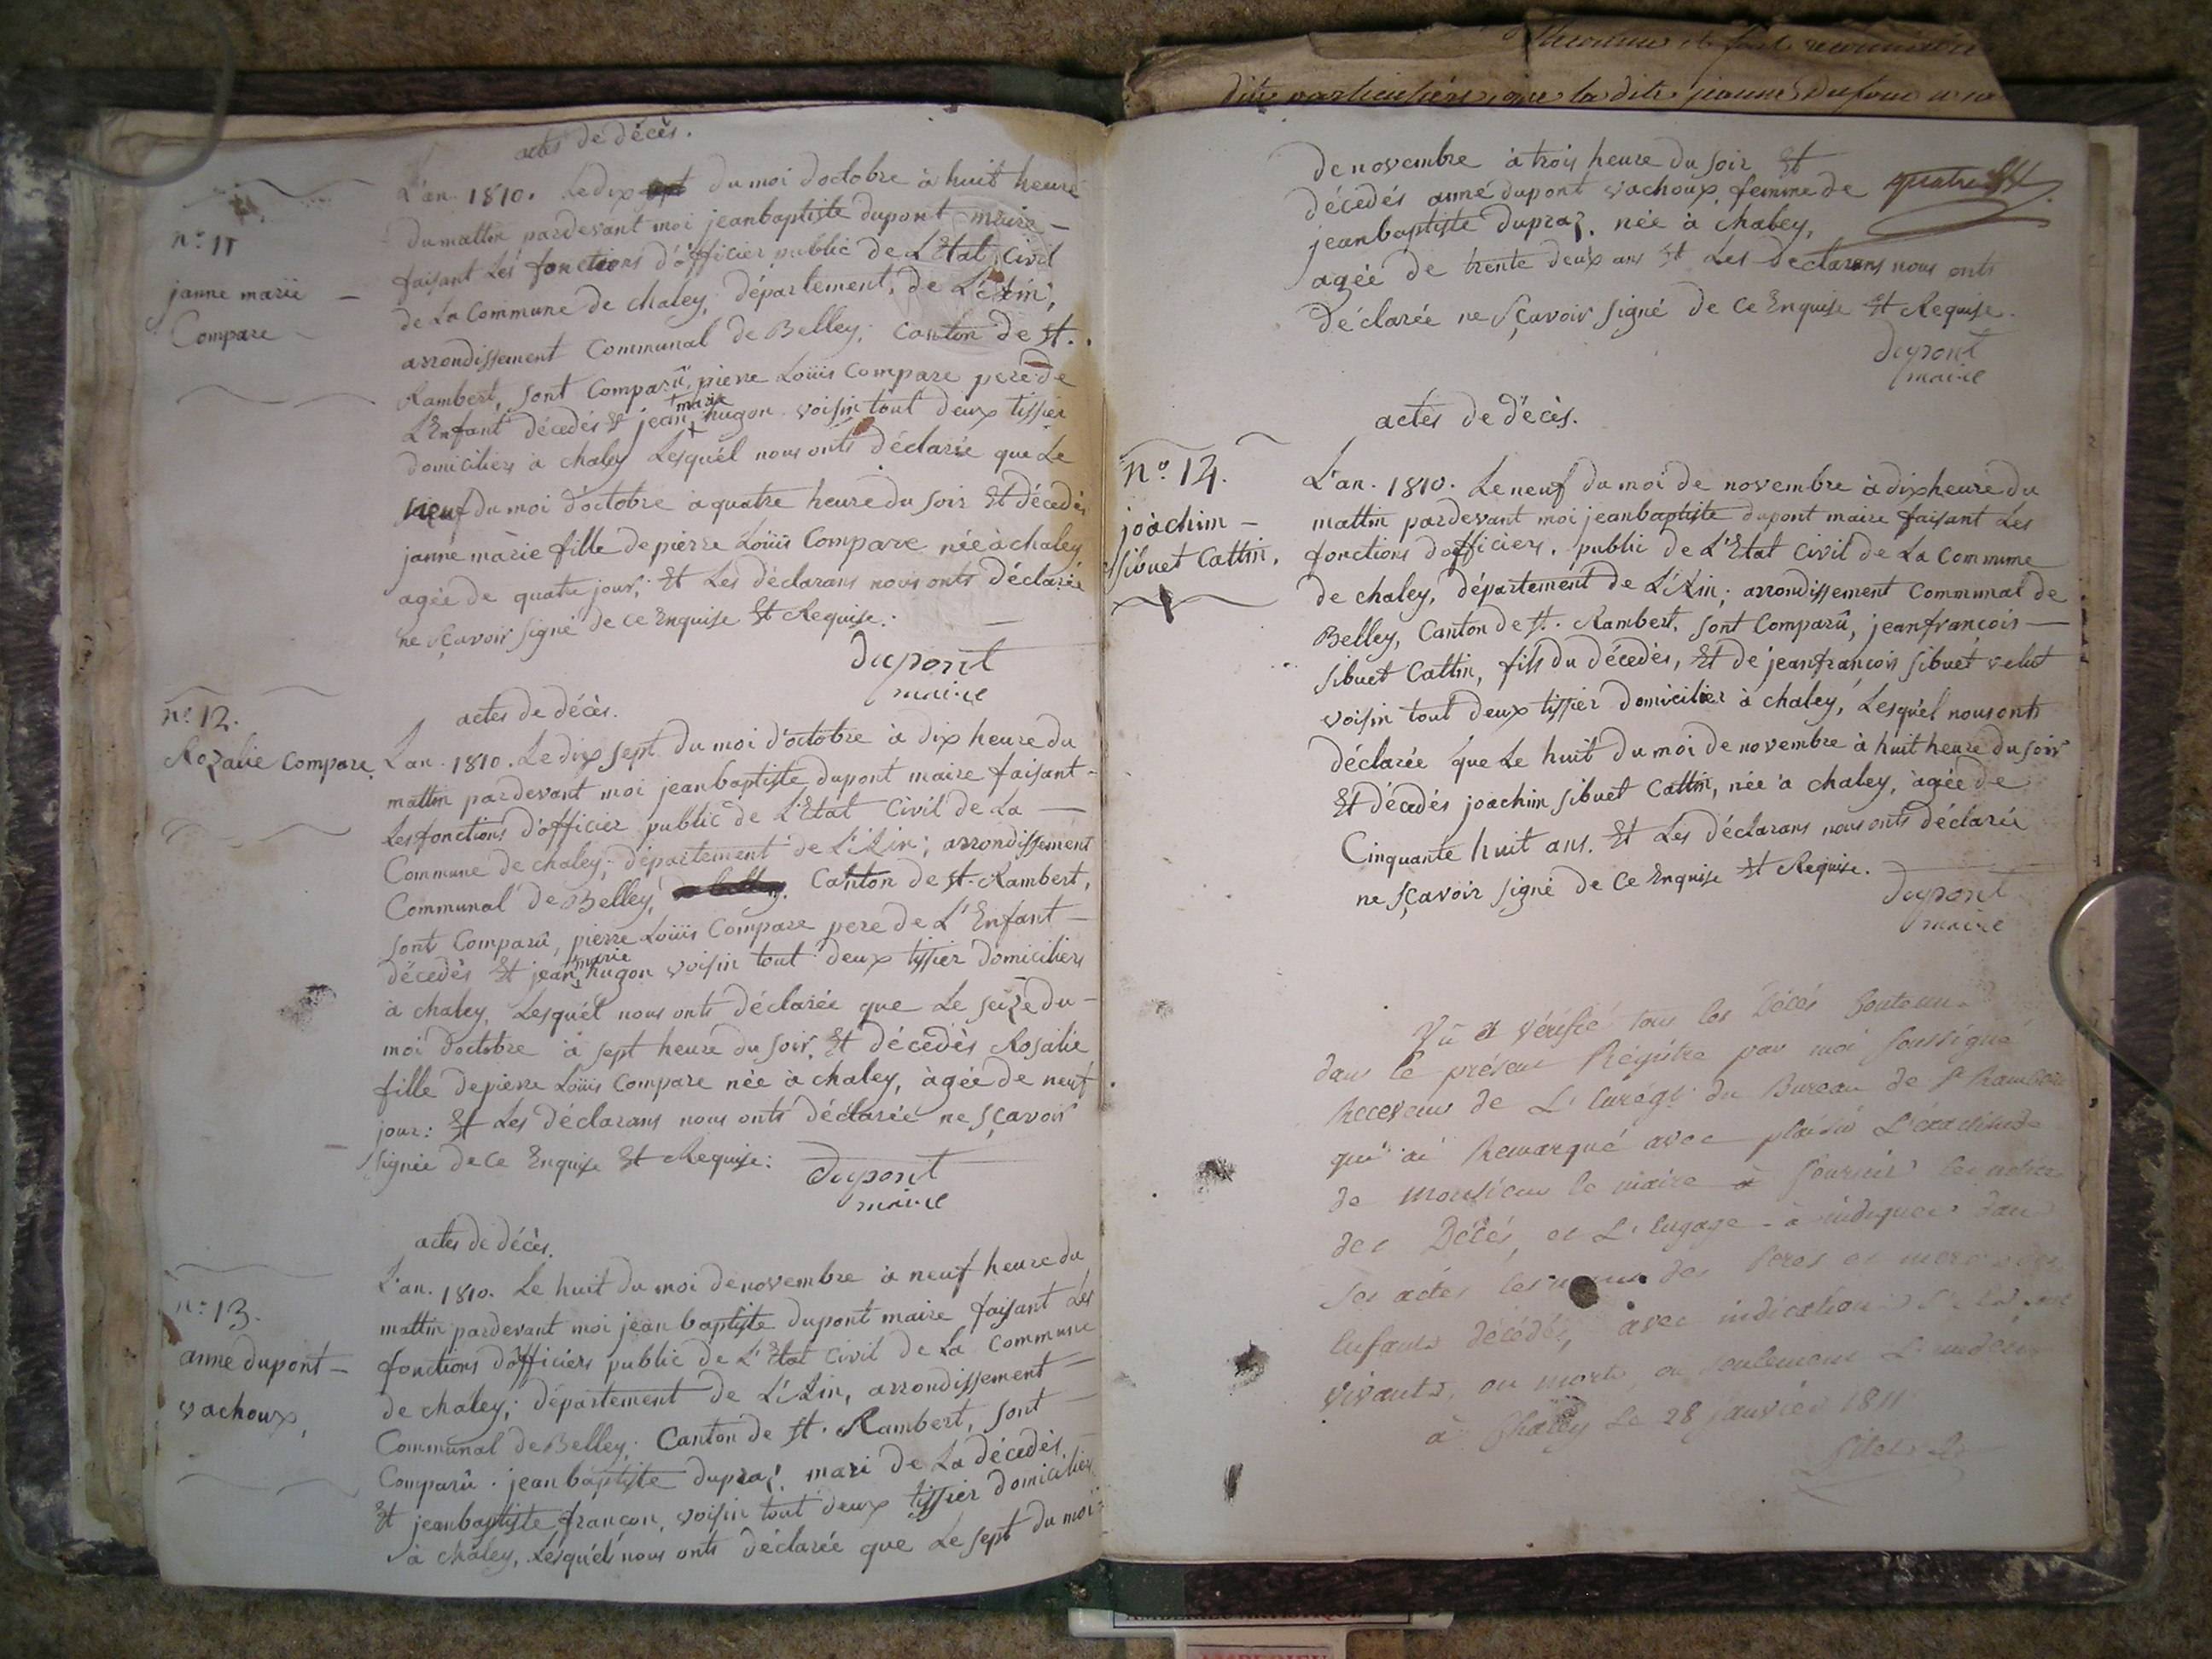 actes de décès.
n.º 11
janne marie —
Compare
L'an. 1810. Le dix du moi doctobre à huit heure
du mattin pardevant moi jeanbaptiste dupont maire —
faisant Les fonctions d'officier public de L'Etat Civil
de La Commune de chaley, département, de L'Ain,
arrondissement Communal de Belley; Canton de st.
Rambert, sont Comparû, pierre Loüis Compare pere de
L'Enfant décedés & jean marie hugon voisin tout deux tissier
domiciliers à chaley Lesquél nous onts déclarée que Le
neuf du moi d'octobre à quatre heure du soir Et décedés
janne màrie fille de pierre Loüis Compare née à chaley
agée de quatre jour; Et Les déclarans nous onts déclarée
ne sçavoir signé de ce Enquise Et Requise:
dupont
maire
n.º 12.
Rozalie Compare
actes de décès.
L'an. 1810. Le dix sept du moi d'octobre à dix heure du
mattin pardevant moi jeanbaptiste dupont maire faisant -
Les fonctions d'officier public de L'Etat Civil de La —
Commune de chaley; département de L'Ain; arrondissement
Communal de Belley, Canton de st. Rambert,
sont Comparû, pierre Loüis Compare pere de L'Enfant —
décedés Et jean marie hugon voisin tout deux tissier domiciliers
à chaley, Lesquél nous onts déclarée que Le seize du -
moi doctobre à sept heure du soir, Et décedès Rosalie
fille de pierre Loüis Compare née à chaley, àgée de neuf
jour: Et Les déclarans nous onts déclarée ne sçavoir
signée de ce Enquise Et Requise:
dupont
maire
n.º 13.
anne dupont —
vachoux,
actes de décès.
L'an. 1810. Le huit du moi de novembre à neuf heure du
mattin pardevant moi jeanbaptiste dupont maire faisant Les
fonctions d'officiers public de L'Etat Civil de La Commune
de chaley; département de L'Ain, arrondissement —
Communal de Belley; Canton de st. Rambert, sont —
Comparû. jeanbaptiste dupraz, mari de La décedés
Et jeanbaptiste francon, voisin tout deux tissier domiciliers
à chaley, Lesquél nous onts déclarée que Le sept du moi
dite jeanne
de novembre à trois heure du soir Et
décedés anne dupont vachoux, femme de
jeanbaptiste dupraz, née à chaley,
agée de trente deux ans Et Les declarans nous onts
déclarée ne sçavoir signé de ce Enquise Et Requise.
dupont
maire
actes de décès.
n.º 14.
joàchim —
sibuet Cattin.
L'an. 1810. Le neuf du moi de novembre à dix heure du
mattin pardevant moi jeanbaptiste dupont maire faisant Les
fonctions d'officiers, public de L'Etat Civil de La Commune
de chaley, département de L'Ain; arrondissement Communal de
Belley, Canton de st. Rambert, sont Comparû, jeanfrançois —
sibuet Cattin, fils du décedés, Et de jeanfrançois sibuet velut
voisin tout deux tissier domicilier à chaley, Lesquél nous onts
déclarée que Le huit du moi de novembre à huit heure du soir
Et décedés joachim sibuet Cattin, née à chaley, àgée de
Cinquante huit ans. Et Les déclarans nous onts déclarée
ne sçavoir signé de ce Enquise Et Requise.
dupont
maire
Vû et Vérifié tous les Décés Contenu
dans le présent Régistre par moi soussigné
Receveur de L'Enrégt. du Bureau de St Rambert
qui ai Remarqué avec plaisir L'éxactitude
de monsieur le maire à fournir les notices
des Décés, et L'Engage à indiquer dans
ses actes les noms des Peres et meres des
Enfants décédés, avec indication
vivants, ou morts, ou seulement
à Chaley Le 28 janvier 1811